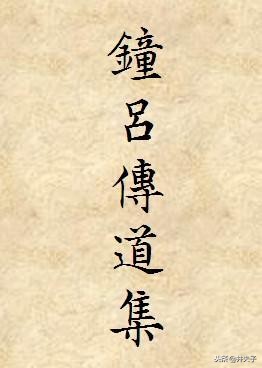 鐘呂傳道集
头条@井夫子